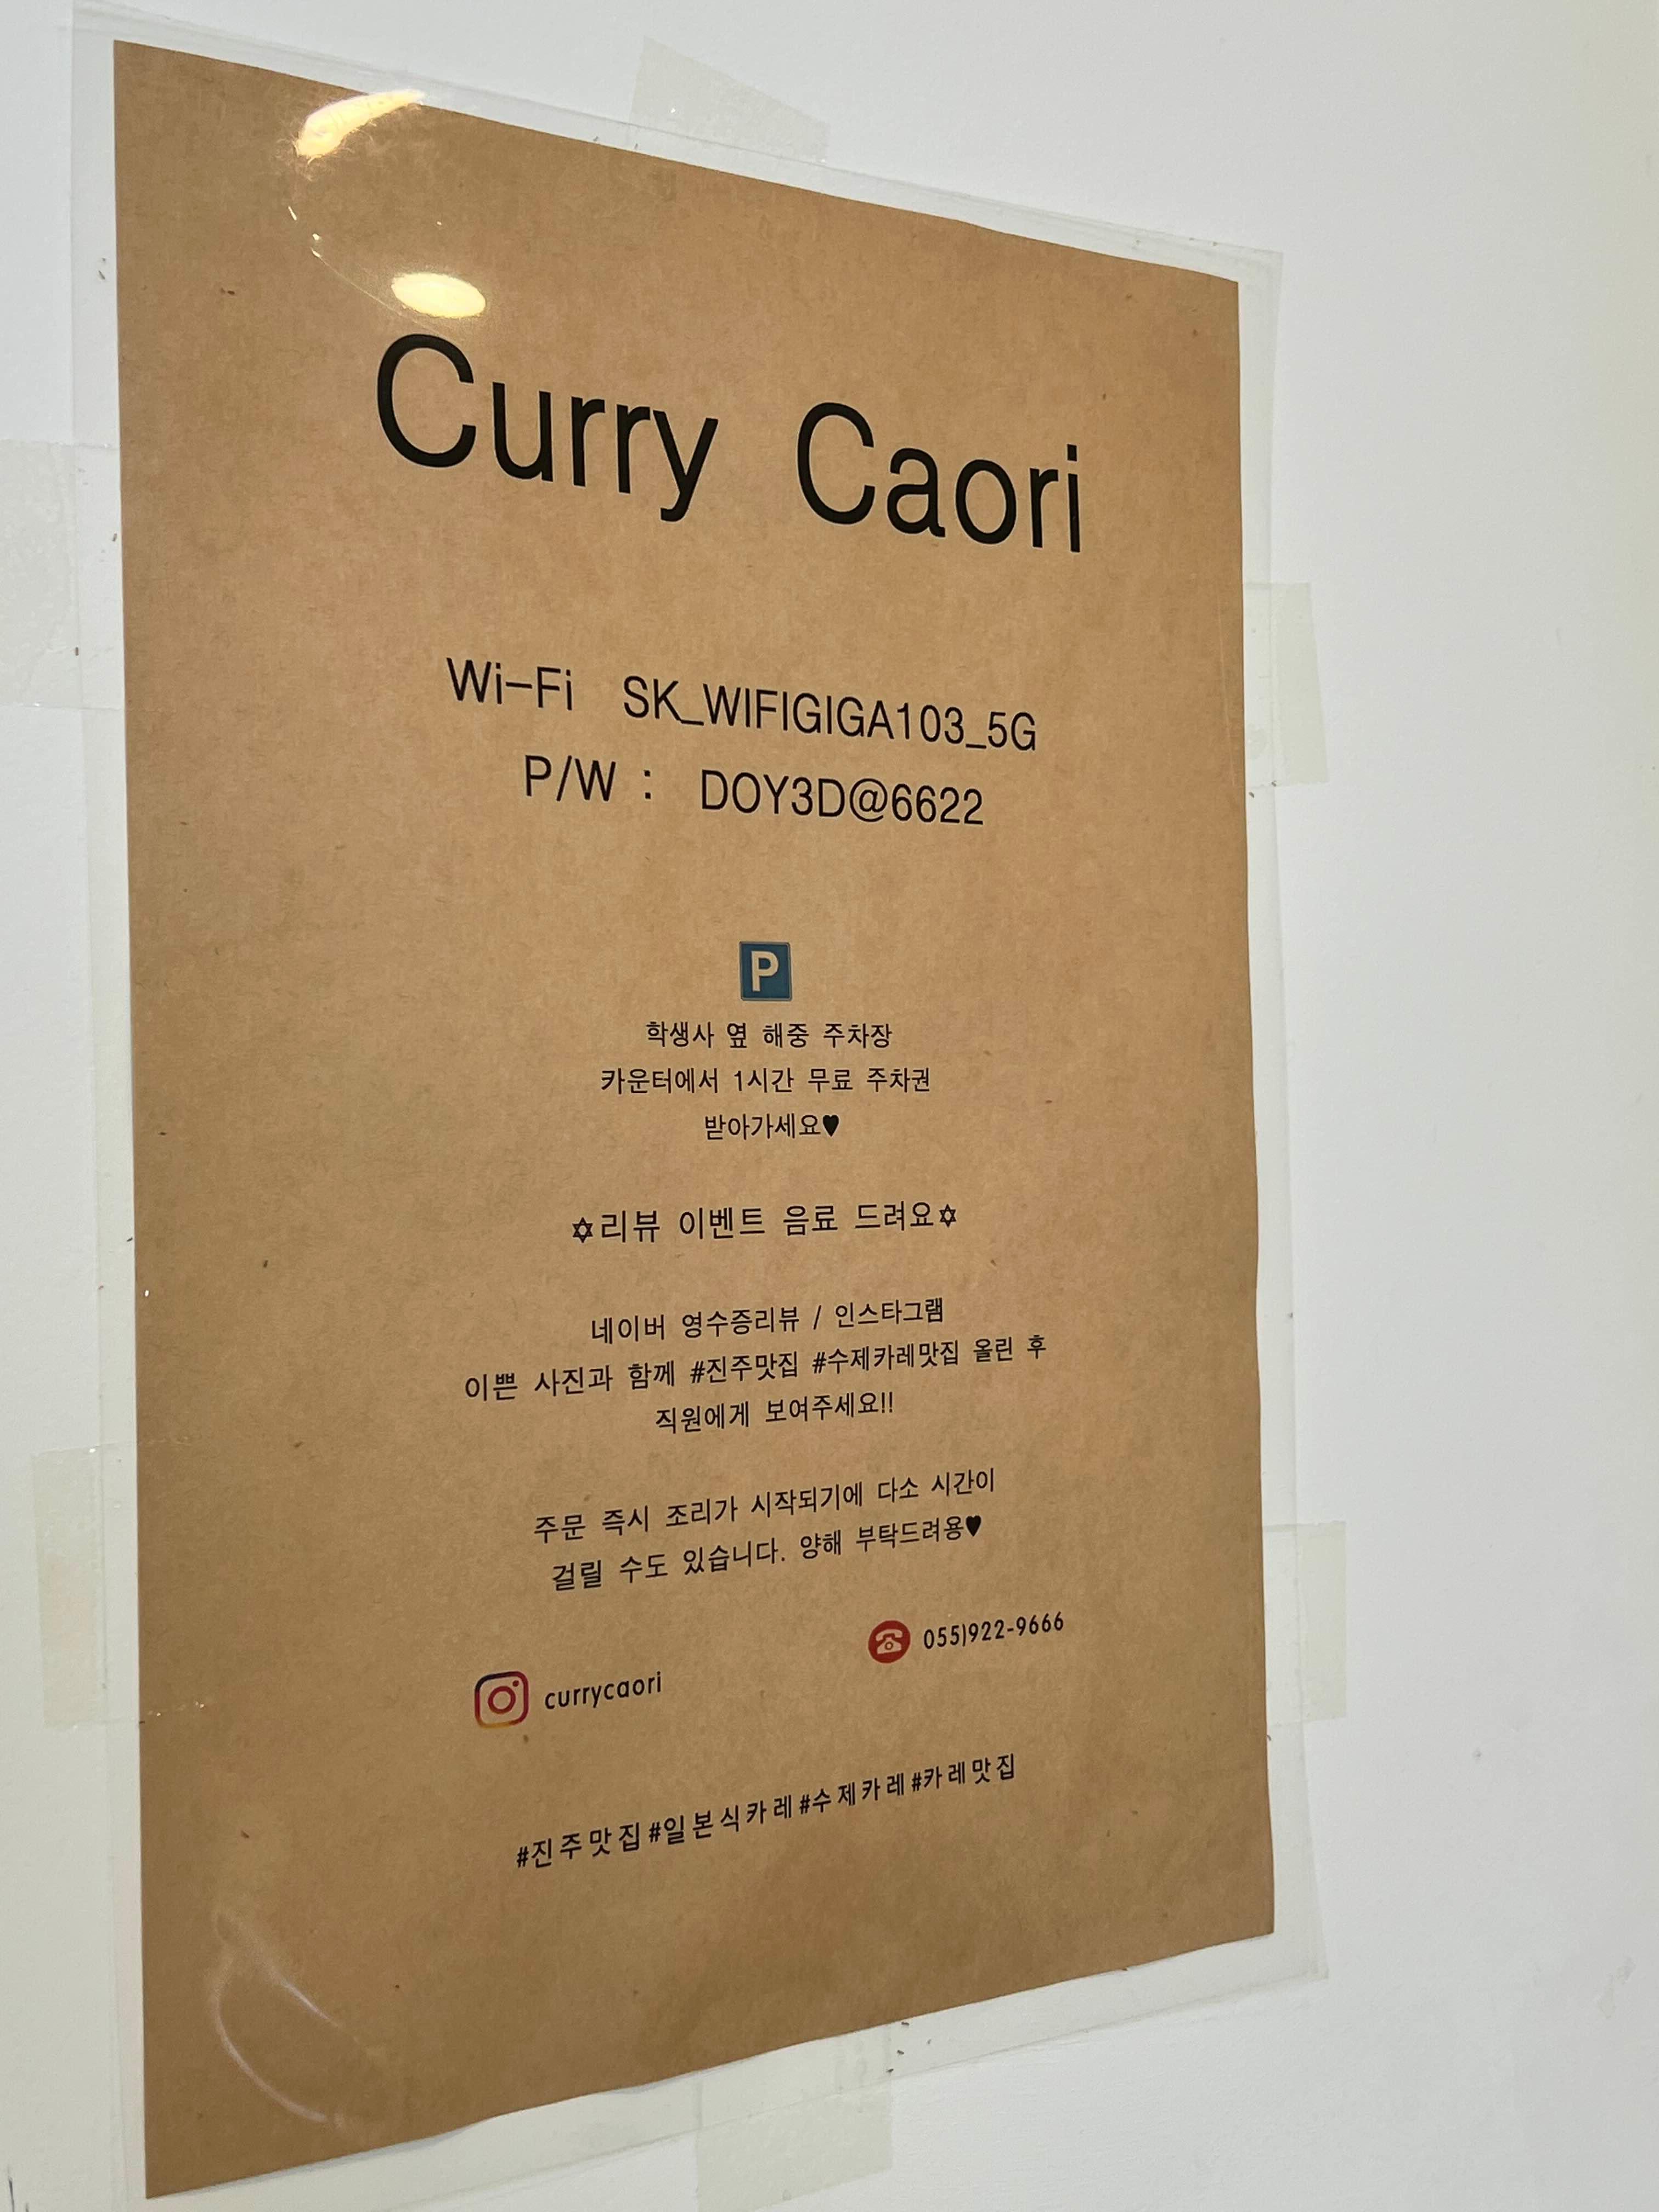 Curry Caori
Wi-Fi SK_WIFIGIGA103_5G
P/W : DOY3D@6622
P
학생사 옆 해중 주차장
카운터에서 1시간 무료 주차권
받아가세요♥
✡리뷰 이벤트 음료 드려요✡
네이버 영수증리뷰 / 인스타그램
이쁜 사진과 함께 #진주맛집 #수제카레맛집 올린 후
직원에게 보여주세요!!
주문 즉시 조리가 시작되기에 다소 시간이
걸릴 수도 있습니다. 양해 부탁드려용♥
055)922-9666
currycaori
#진주맛집#일본식카레#수제카레#카레맛집